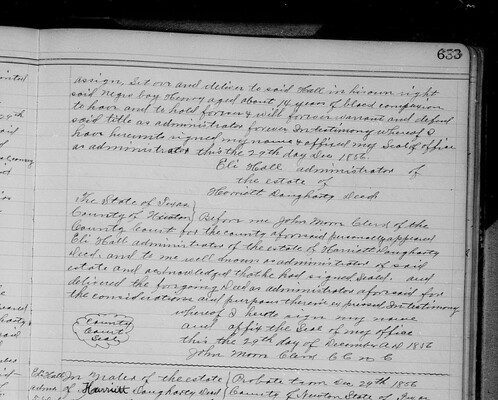 633
assign, Set over and deliver to said Hall in his own right
said Negro boy Henry aged about 14 years of black complexion
to have and to hold forever & will forever warrant and defend
said title as administrator forever In testimony whereof I
have hereunto signed my name & affixed my Seal of office
as administrator this the 29th day Dec 1856.
Eli Hall administrator of
the estate of
Harriett Daugharty Decd
The State of Texas
County of Newton } Before me John Moor Clerk of the
County Court for the county aforesaid personally appeared
Eli Hall administrator of the estate of Harriett Daugharty
Decd, and to me well known as administrator of said
estate and acknowledged that he had signed Sealed and
delivered the forgoing Deed as administrator aforesaid for
the considerations and purposes therein expressed In testimony
whereof I hereto sign my name
and affix the Seal of my office
this the 29th day of December A.d 1856
John Moor Clerk C C N C
County
Court
Seal
Eli Hall
admr of
In Matter of the estate } Probate term Dec 29th 1856
of Harriett Daugharty Decd } County of Newton State of Texas
29th